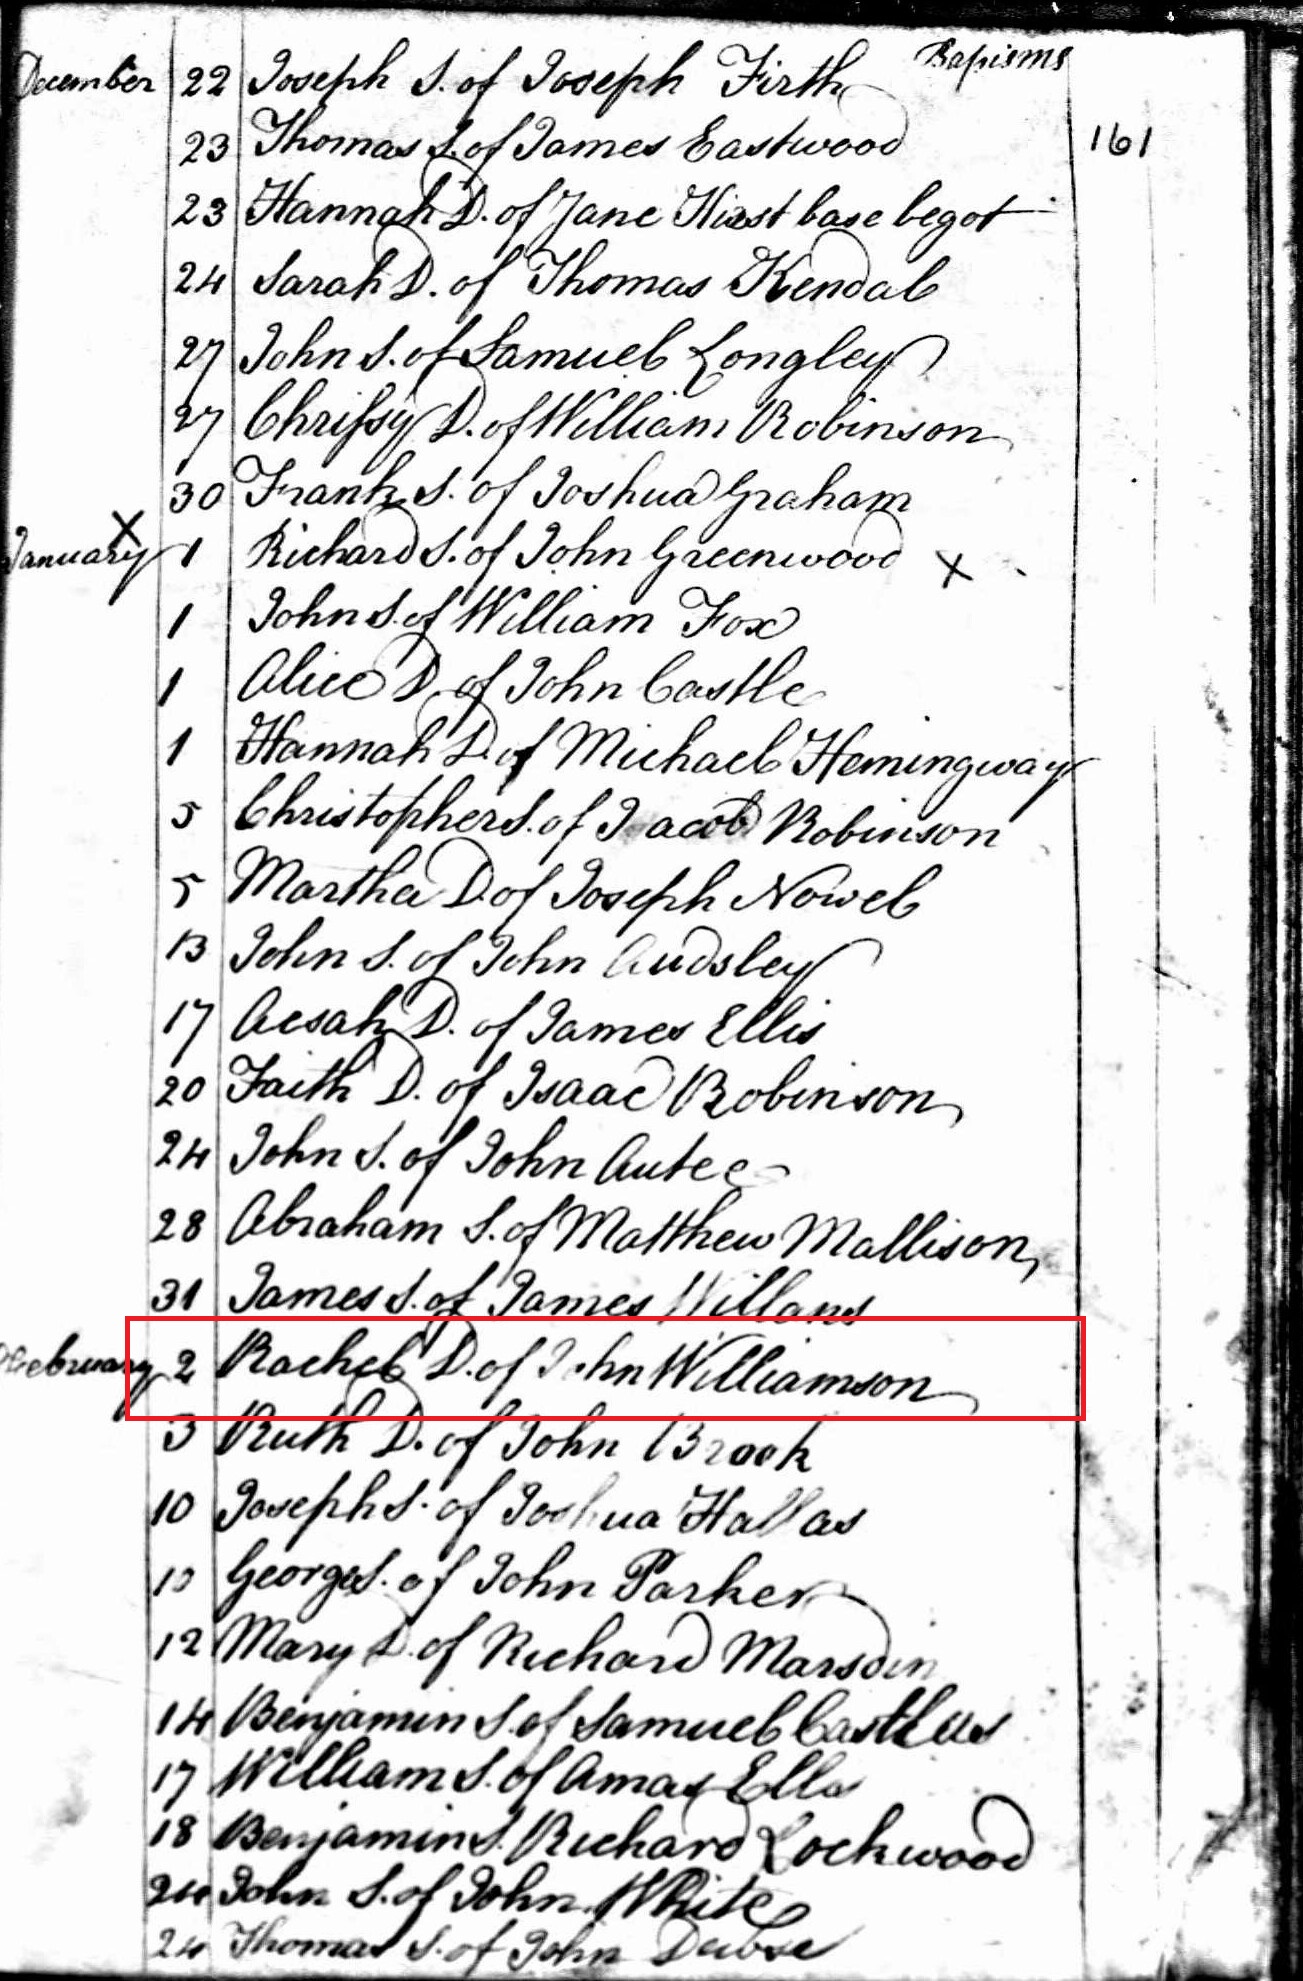 Bapisms
December 22 Joseph S. of Joseph Firth
161
23 Thomas S. of James Eastwood
23 Hannah D. of Jane Hirst base begot
24 Sarah D. of Thomas Kendal
27 John S. of Samuel Longley
27 Chrissy D. of William Robinson
30 Frank S. of Joshua Graham
X
January 1 Richard S. of John Greenwood X
1 John S. of William Fox
1 Alice D. of John Castle
1 Hannah D. of Michael Hemingway
5 Christopher S. of Jacob Robinson
5 Martha D. of Joseph Nowel
13 John S. of John Audsley
17 Aesah D. of James Ellis
20 Faith D. of Isaac Robinson
24 John S. of John Autee
28 Abraham S. of Matthew Mallison
31 James S. of James Willans
February 2 Rachel D. of John Williamson
3 Ruth D. of John Brook
10 Joseph S. of Joshua Hallas
10 George S. of John Parker
12 Mary D. of Richard Marsdin
14 Benjamin S. of Samuel
17 William S. of Amas
18 Benjamin S. Richard Lockwood
24 John S. of John White
24 Thomas S. of John